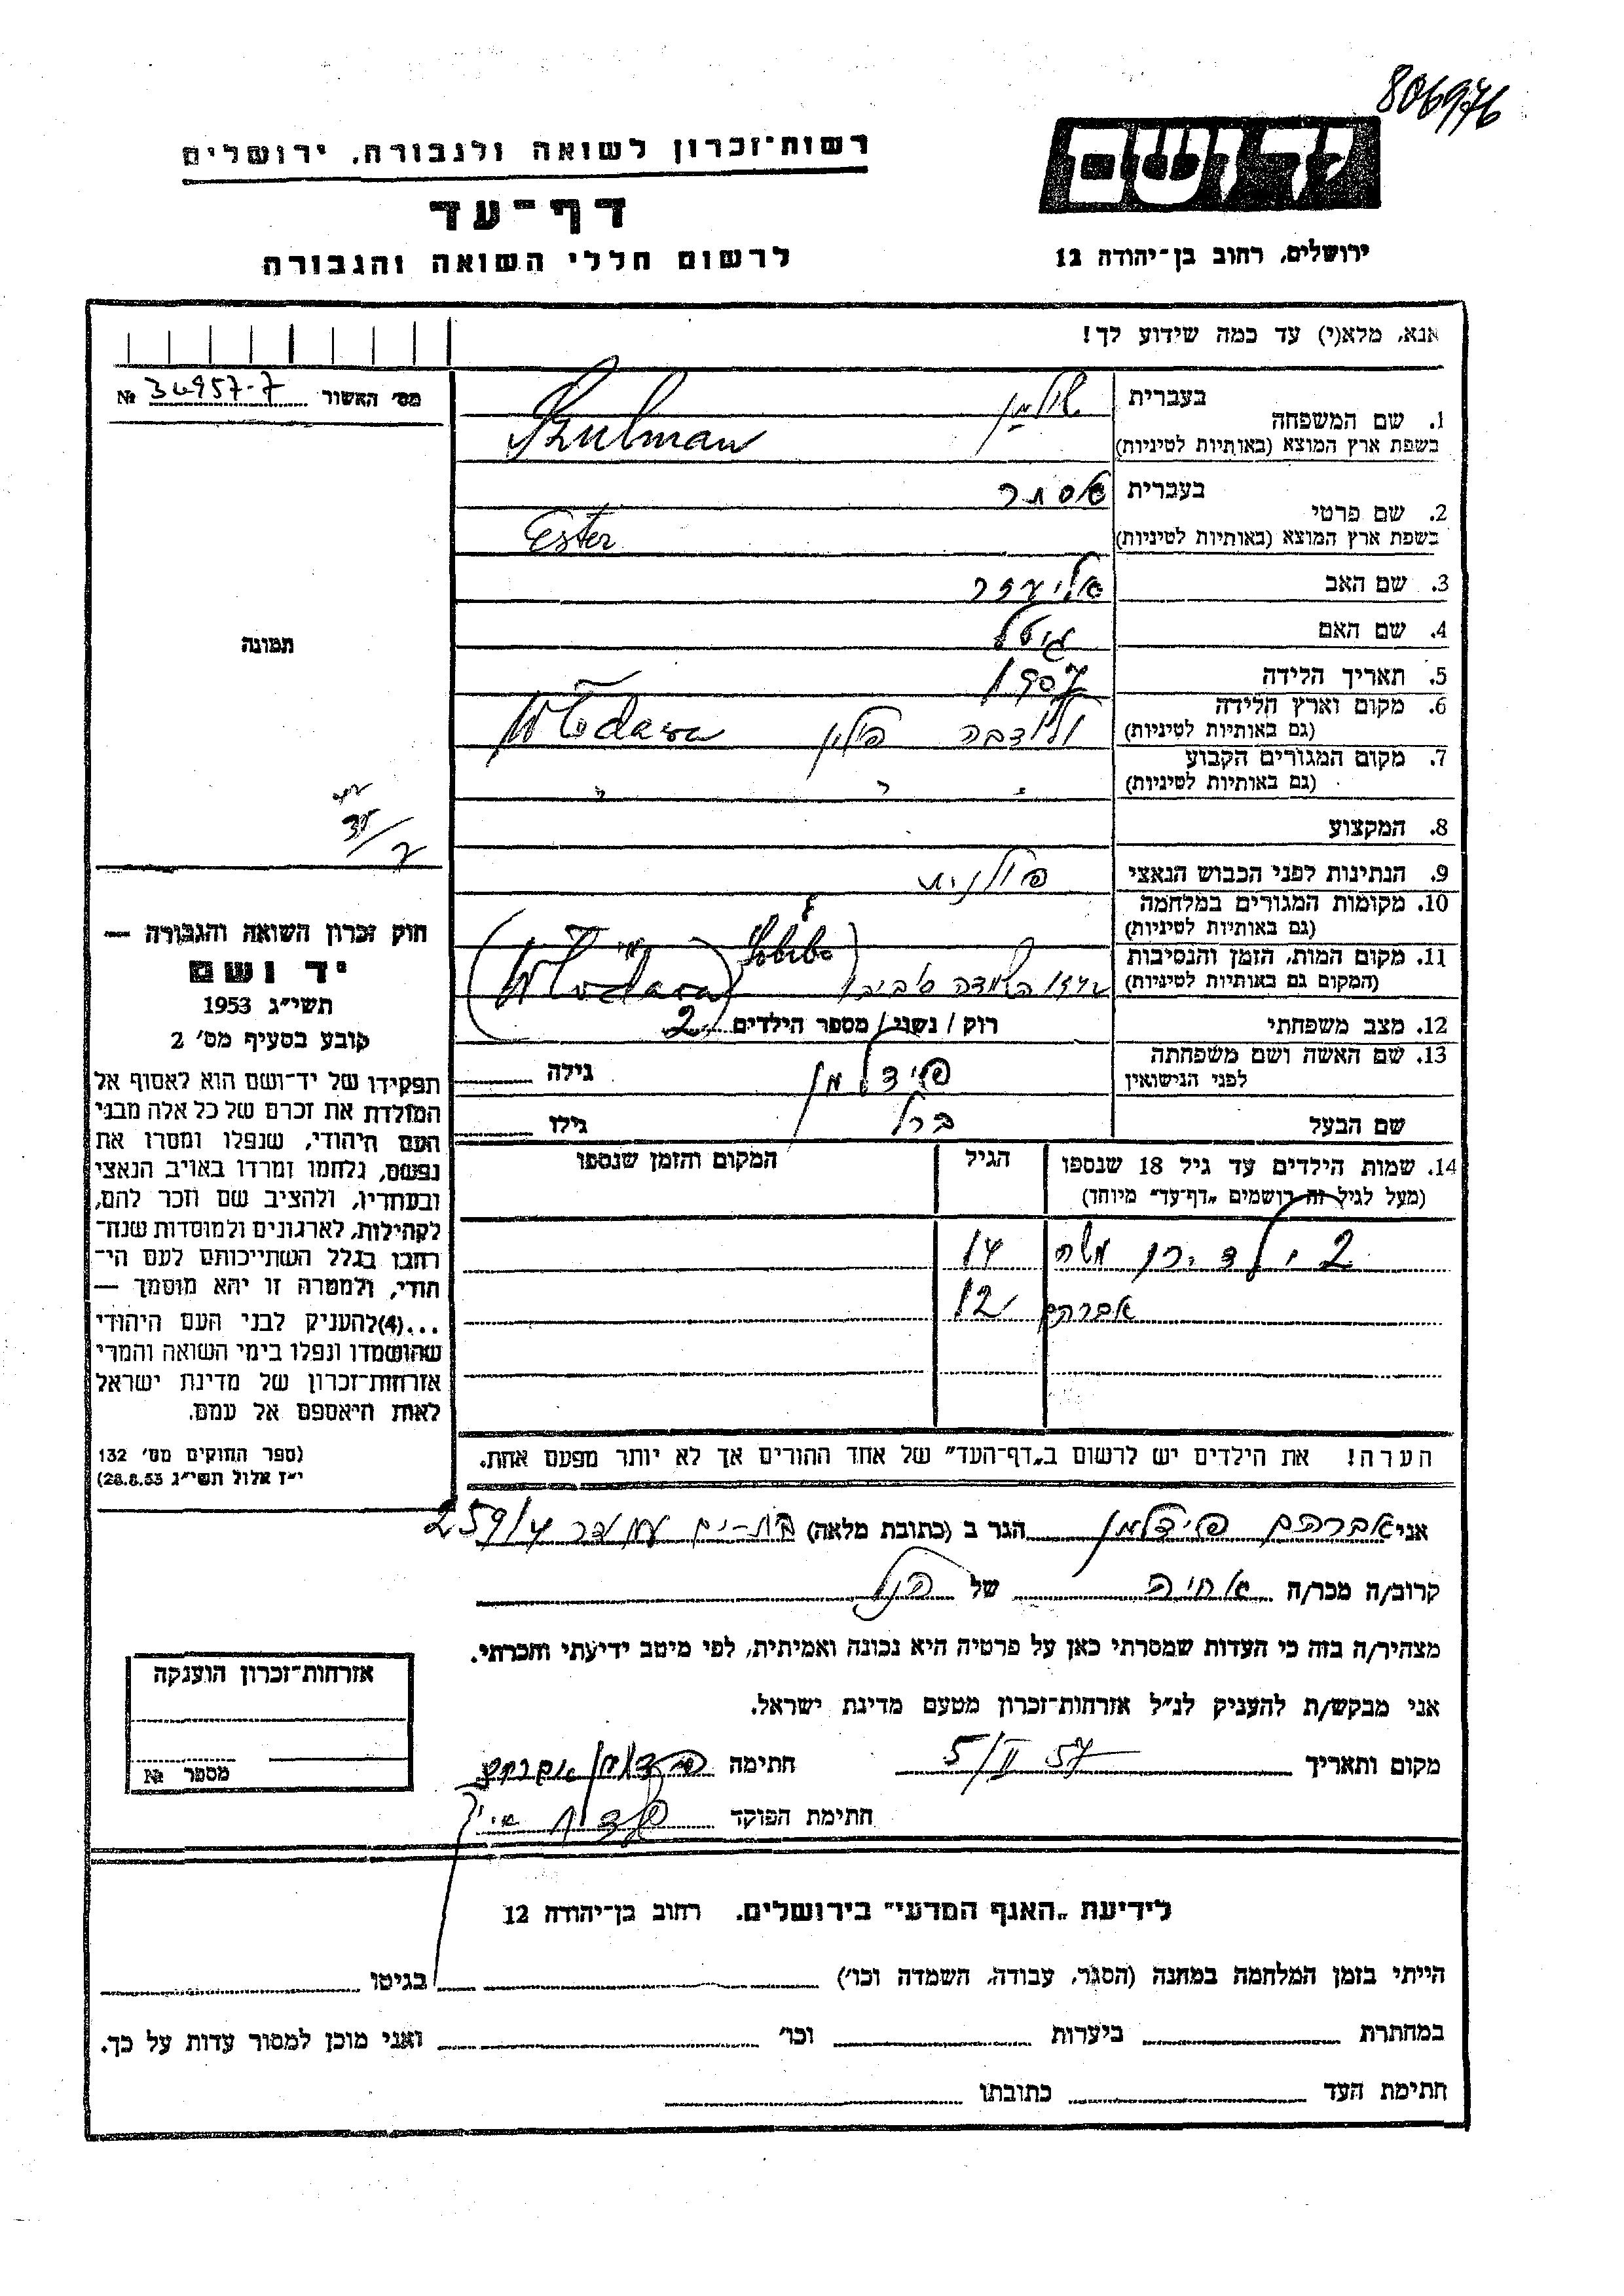 806976
רשות־זכרון לשואה ולגבורה, ירושלים
יד ושם
דף־עד
לרשום חללי השואה והגבורה
ירושלים, רחוב בן־יהודה 12
אנא, מלא(י) עד כמה שידוע לך!
מס׳ האשור № 34957-7
תמונה
1. שם המשפחה
בעברית שולמן
בשפת ארץ המוצא (באותיות לטיניות) Szulman
2. שם פרטי
בעברית אסתר
בשפת ארץ המוצא (באותיות לטיניות) Ester
3. שם האב אליעזר
4. שם האם גיטל
5. תאריך הלידה 1907
6. מקום וארץ הלידה
(גם באותיות לטיניות) ולודבה פולין Włodawa
7. מקום המגורים הקבוע
(גם באותיות לטיניות) " " "
8. המקצוע
9. הנתינות לפני הכבוש הנאצי פולנית
10. מקומות המגורים במלחמה
(גם באותיות לטיניות)
11. מקום המות, הזמן והנסיבות
(המקום גם באותיות לטיניות) השמדה סוביבור (Sobibor) (Włodawa)
12. מצב משפחתי רוק / נשוי / מספר הילדים 2
13. שם האשה ושם משפחתה
לפני הנישואין פידלמן גילה
שם הבעל ברל גילו
14. שמות הילדים עד גיל 18 שנספו הגיל המקום והזמן שנספו
(מעל לגיל זה רושמים „דף־עד״ מיוחד)
2 ילדים משה 14
אברהם 12
הערה! את הילדים יש לרשום ב„דף־העד״ של אחד ההורים אך לא יותר מפעם אחת.
חוק זכרון השואה והגבורה —
יד ושם
תשי״ג 1953
קובע בסעיף מס׳ 2
תפקידו של יד־ושם הוא לאסוף אל
המולדת את זכרם של כל אלה מבני
העם היהודי, שנפלו ומסרו את
נפשם, נלחמו ומרדו באויב הנאצי
ובעוזריו, ולהציב שם וזכר להם,
לקהילות, לארגונים ולמוסדות שנח־
רבו בגלל השתייכותם לעם הי־
הודי, ולמטרה זו יהא מוסמך —
...(4)להעניק לבני העם היהודי
שהושמדו ונפלו בימי השואה והמרי
אזרחות־זכרון של מדינת ישראל
לאות היאספם אל עמם.
(ספר החוקים מס׳ 132
י״ז אלול תשי״ג 28.8.53)
אני אברהם פידלמן הגר ב (כתובת מלאה) בת-ים 259/4
קרוב/ה מכר/ה אחיה של הנ״ל
מצהיר/ה בזה כי העדות שמסרתי כאן על פרטיה היא נכונה ואמיתית, לפי מיטב ידיעתי והכרתי.
אני מבקש/ת להעניק לנ״ל אזרחות־זכרון מטעם מדינת ישראל.
מקום ותאריך 5/II 57 חתימה פידלמן אברהם
חתימת הפוקד
אזרחות־זכרון הוענקה
מספר №
לידיעת „האגף המדעי״ בירושלים. רחוב בן־יהודה 12
הייתי בזמן המלחמה במחנה (הסגר, עבודה, השמדה וכו׳) בגיטו
במחתרת ביערות וכו׳ ואני מוכן למסור עדות על כך.
חתימת העד כתובתו